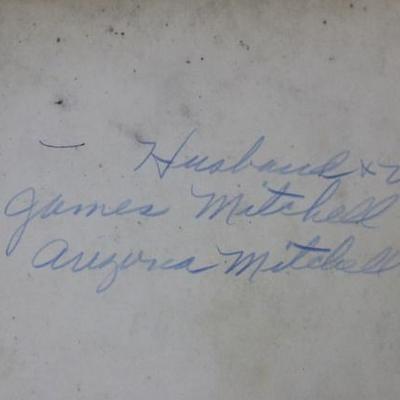 Husband &
James Mitchell
Arizona Mitchell